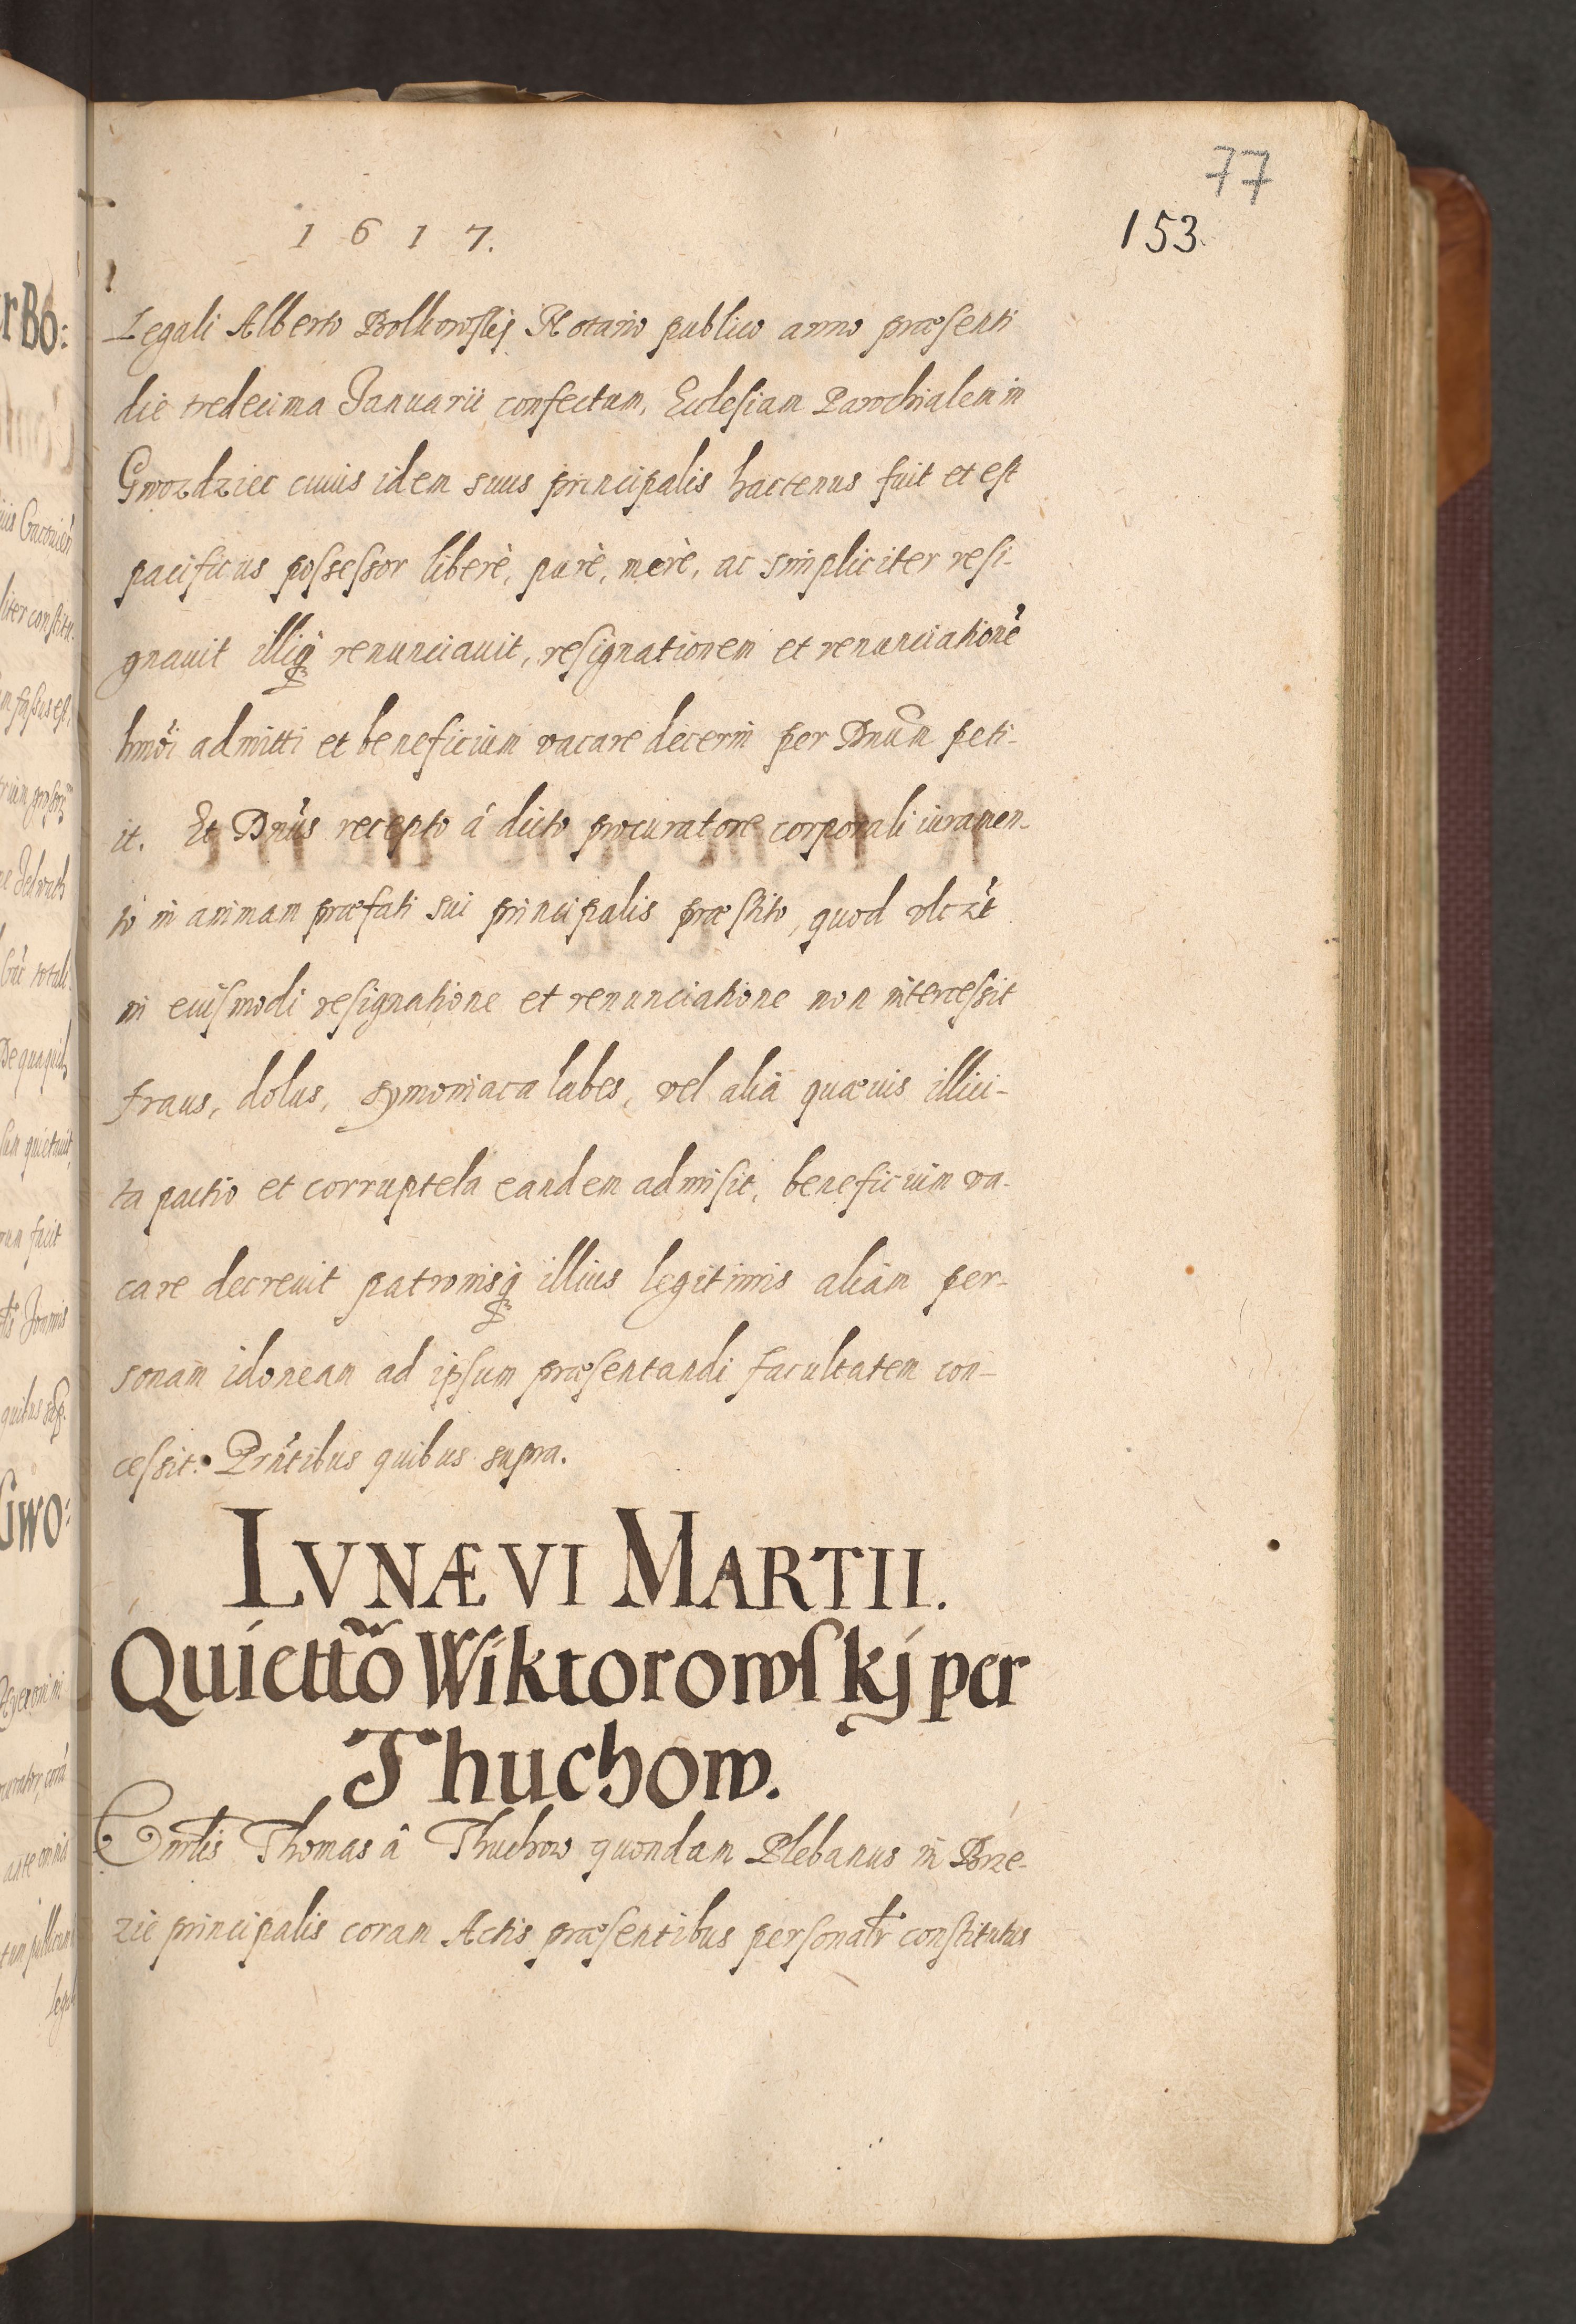 77
1617.
153.
Legali Alberto Bolkowskij Notario publico anno præsenti
die tredecima Januarii confectum, Ecclesiam Parochialem in
Gwozdziec cuius idem suus principalis hactenus fuit et est
pacificus possessor liberè, purè, merè, ac simpliciter resi-
gnauit illiq́ꝫ renunciauit, resignationem et renunciationẽ
hmõi admitti et beneficium vacare decerni per Dnũm peti-
it. Et Dnũs recepto â dicto procuratore corporali iuramen-
to in animam præfati sui principalis præstito, quod
in eiusmodi resignatione et renunciatione non intercessit
fraus, dolus, symoniaca labes, vel alia quæuis illici-
ta pactio et corruptela eandem admisit, beneficium va-
care decreuit patronisq́ꝫ illius legitimis aliam per-
sonam idoneam ad ipsum præsentandi facultatem con-
cessit. Prñtibus quibus supra.
LVNÆ VI MARTII.
Quiettõ Wiktorowskj per
Thuchow.
Thomas â Thuchow quondam Plebanus in Brze-
zie principalis coram Actis præsentibus personaĺr constitutus